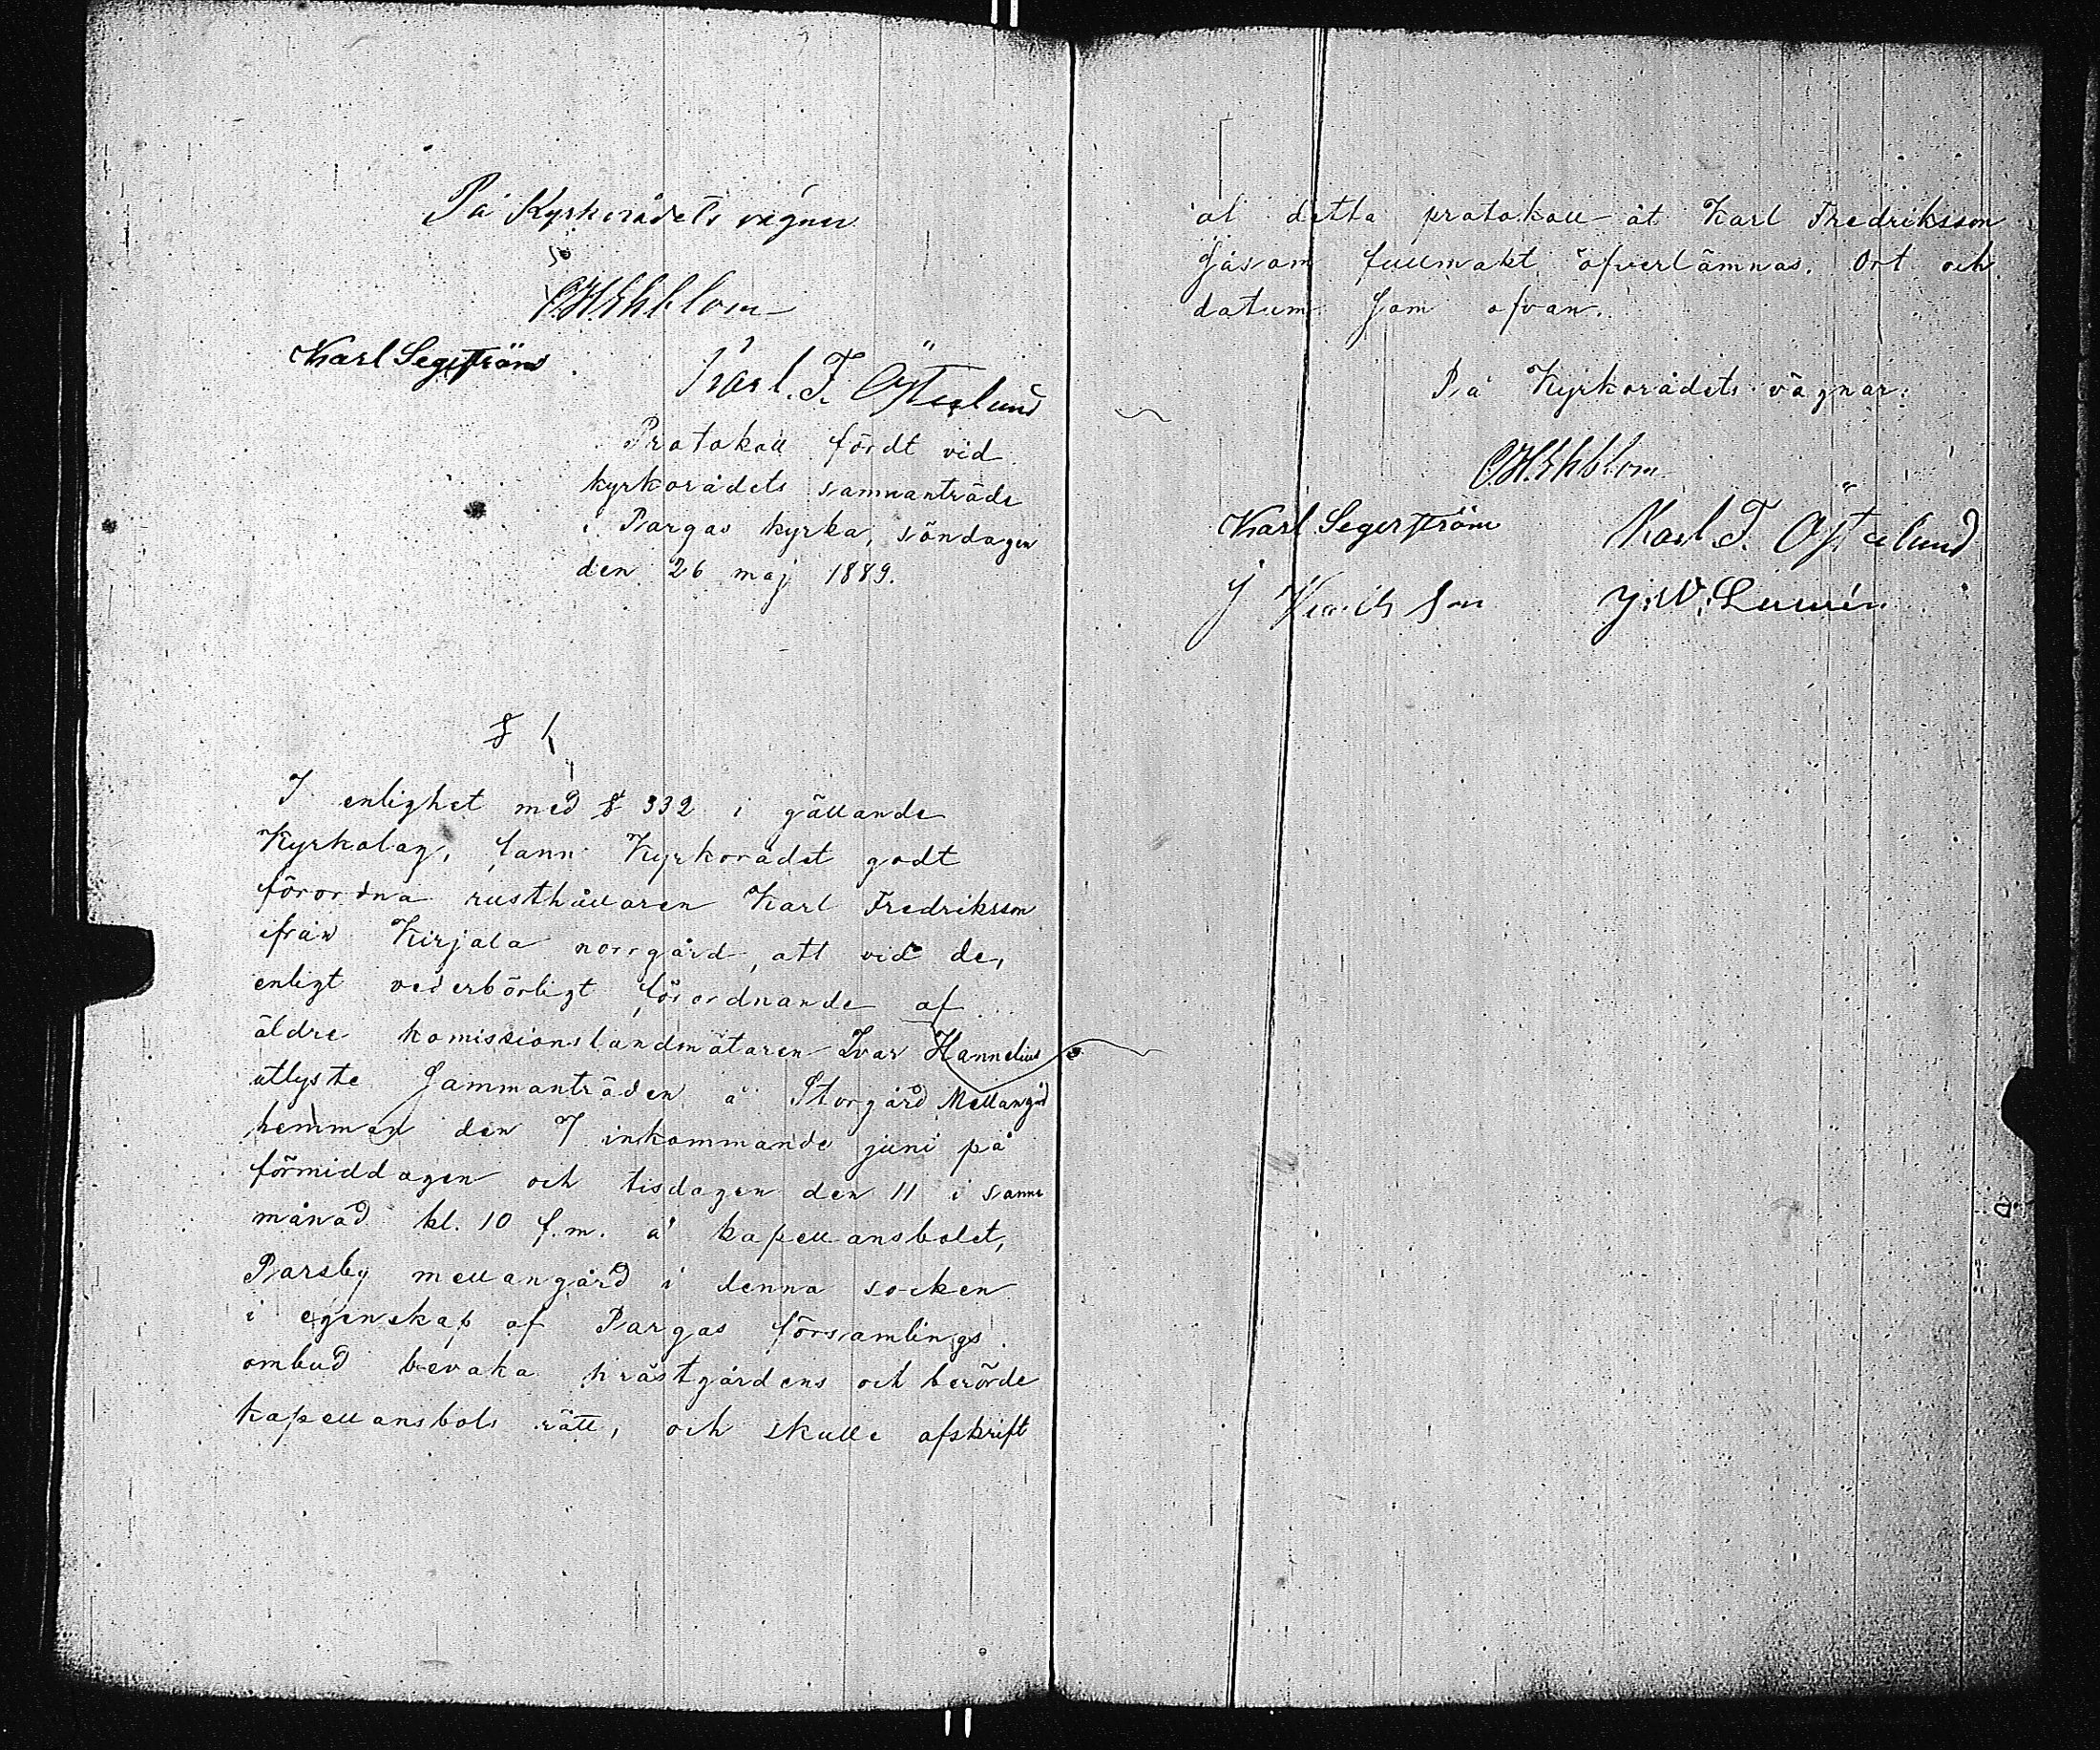 På Kyrkorådets vägnar
C.H. Ehblom
Karl Segerström
Karl. F. Österlund
Protokoll fördt vid
kyrkorådets sammanträde
i Pargas kyrka, söndagen
den 26 maj 1889.
§ 1
I enlighet med § 332 i gällande
Kyrkolag, fann Kyrkorådet godt
förordna rusthållaren Karl Fredriksson
ifrån Kirjala norrgård, att vid de,
enligt vederbörligt förordnande af
äldre komissionslandmätaren Ivar Hannelius
utlyste Sammanträden å Storgård Mellangård
hemman den 7 inkommande juni på
förmiddagen och tisdagen den 11 i samma
månad kl. 10 f.m. å kapellansbolet,
Parsby mellangård i denna socken
i egenskap af Pargas församlings
ombud bevaka prästgårdens och berörde
kapellansbols rätt, och skulle afskrift
af detta protokoll åt Karl Fredriksson
såsom fullmakt öfverlämnas. Ort och
datum Som ofvan.
På Kyrkorådets vägnar:
C.H. Ehblom
Karl Segerström Karl F. Österlund
J J. W.